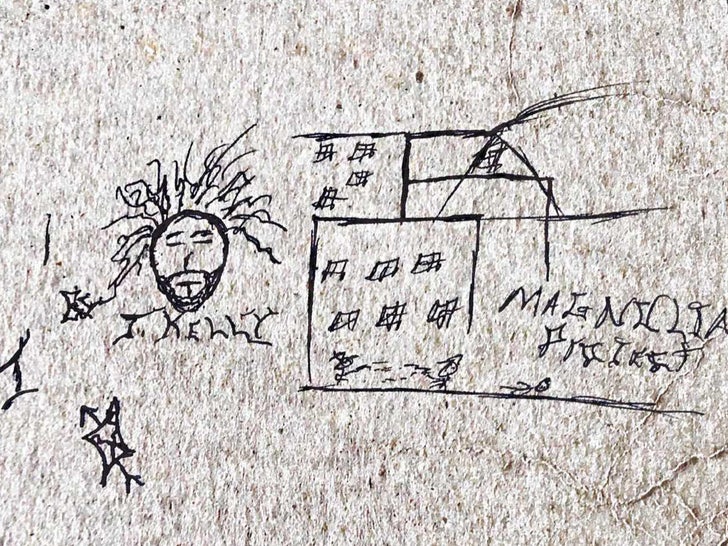 J. KELLY
MAGNOLIA
PROJECT